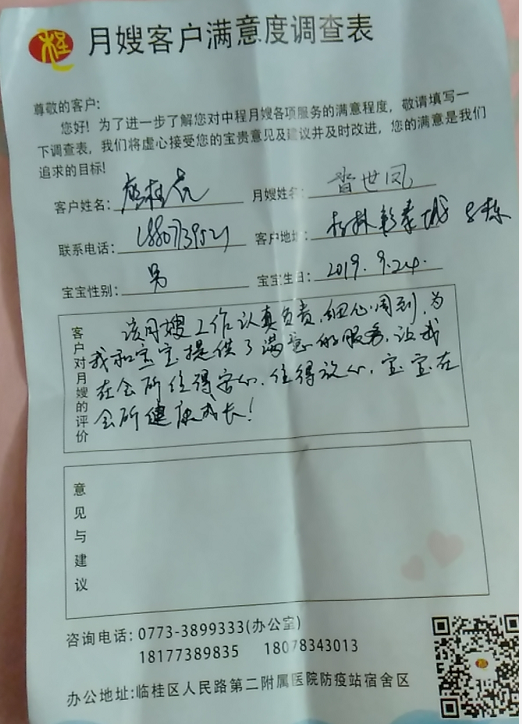 程
月嫂客户满意度调查表
尊敬的客户:
您好! 为了进一步了解您对中程月嫂各项服务的满意程度, 敬请填写一
下调查表, 我们将虚心接受您的宝贵意见及建议并及时改进, 您的满意是我们
追求的目标!
客户姓名: 月嫂姓名: 世凤
联系电话: 客户地址: 桂林彰泰城 8栋
宝宝性别: 男 宝宝生日: 2019.9.24.
客户对月嫂的评价
该月嫂工作认真负责,细心周到,为
我和宝宝提供了满意的服务,让我
在会所住得安心,住得放心,宝宝在
会所健康成长!
意见与建议
咨询电话: 0773-3899333(办公室)
18177389835 18078343013
办公地址: 临桂区人民路第二附属医院防疫站宿舍区